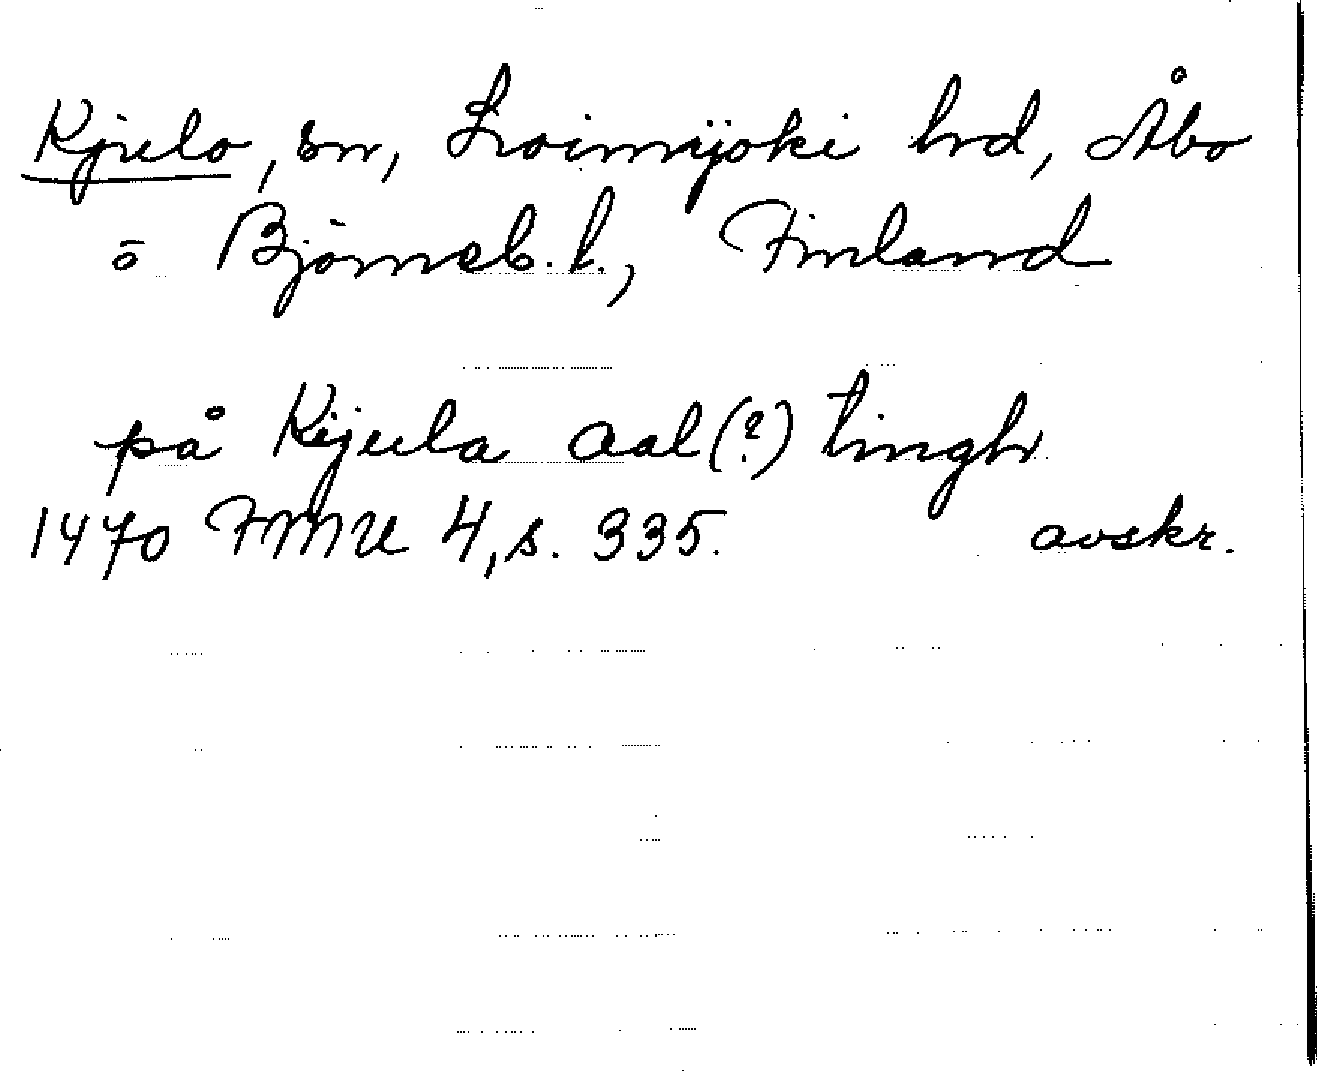 Kjulo, sn, Loimijoki hrd, Åbo
o Björneb. l., Finland
på Kijula aal(?) tingh
1470 FMU 4, s. 335. avskr.